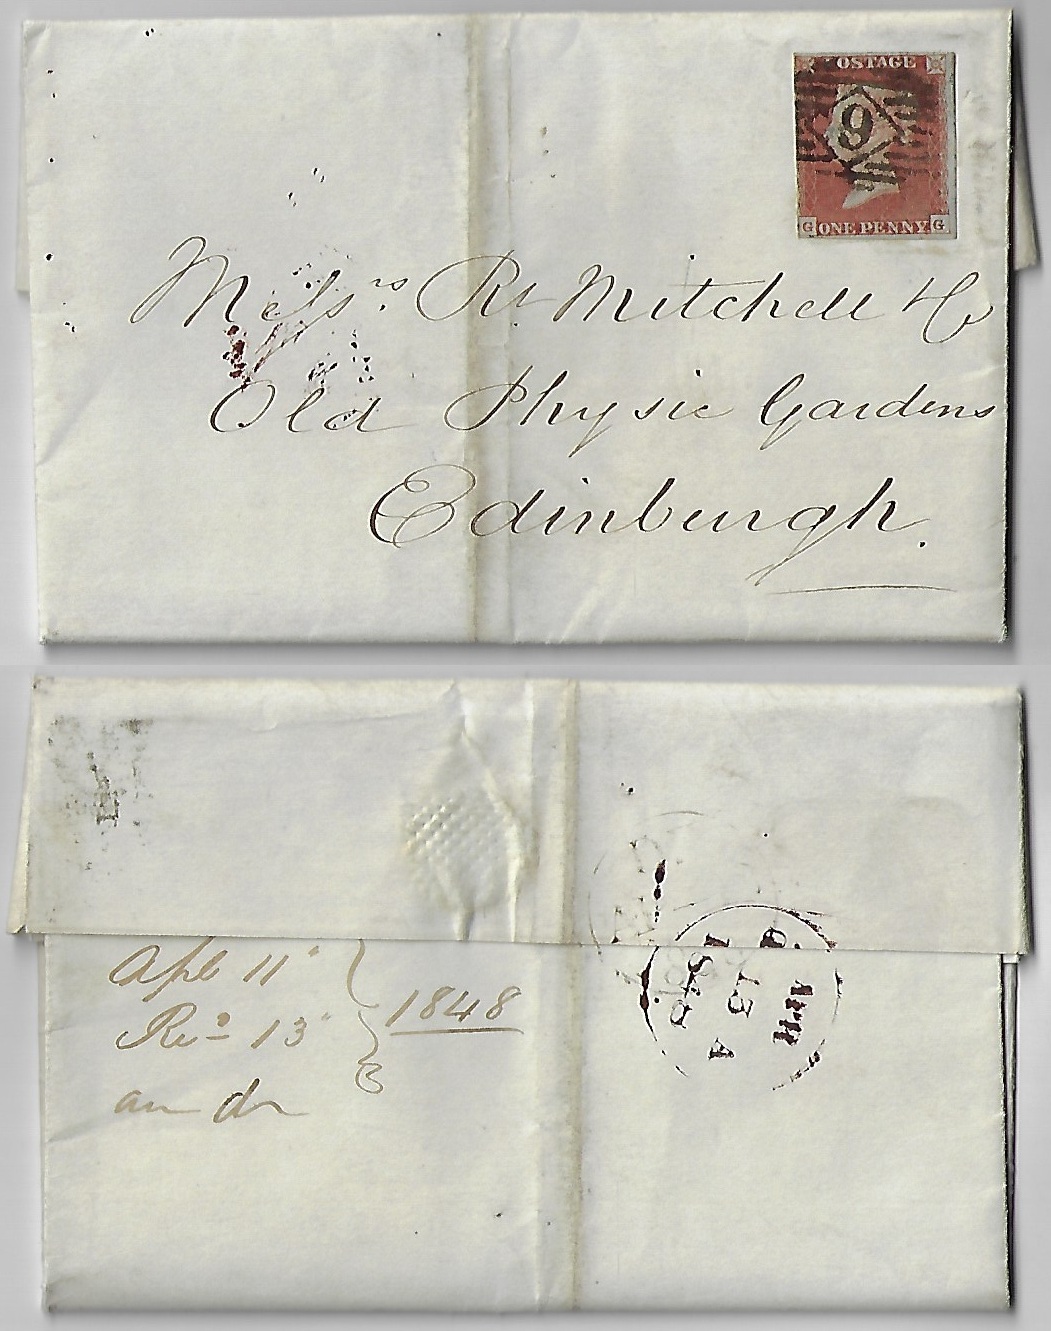 POSTAGE
9
G ONE PENNY G
Messrs. Rt. Mitchell & Co
Old Physic Gardens
Edinburgh.
Apl 11
1848
Recd 13